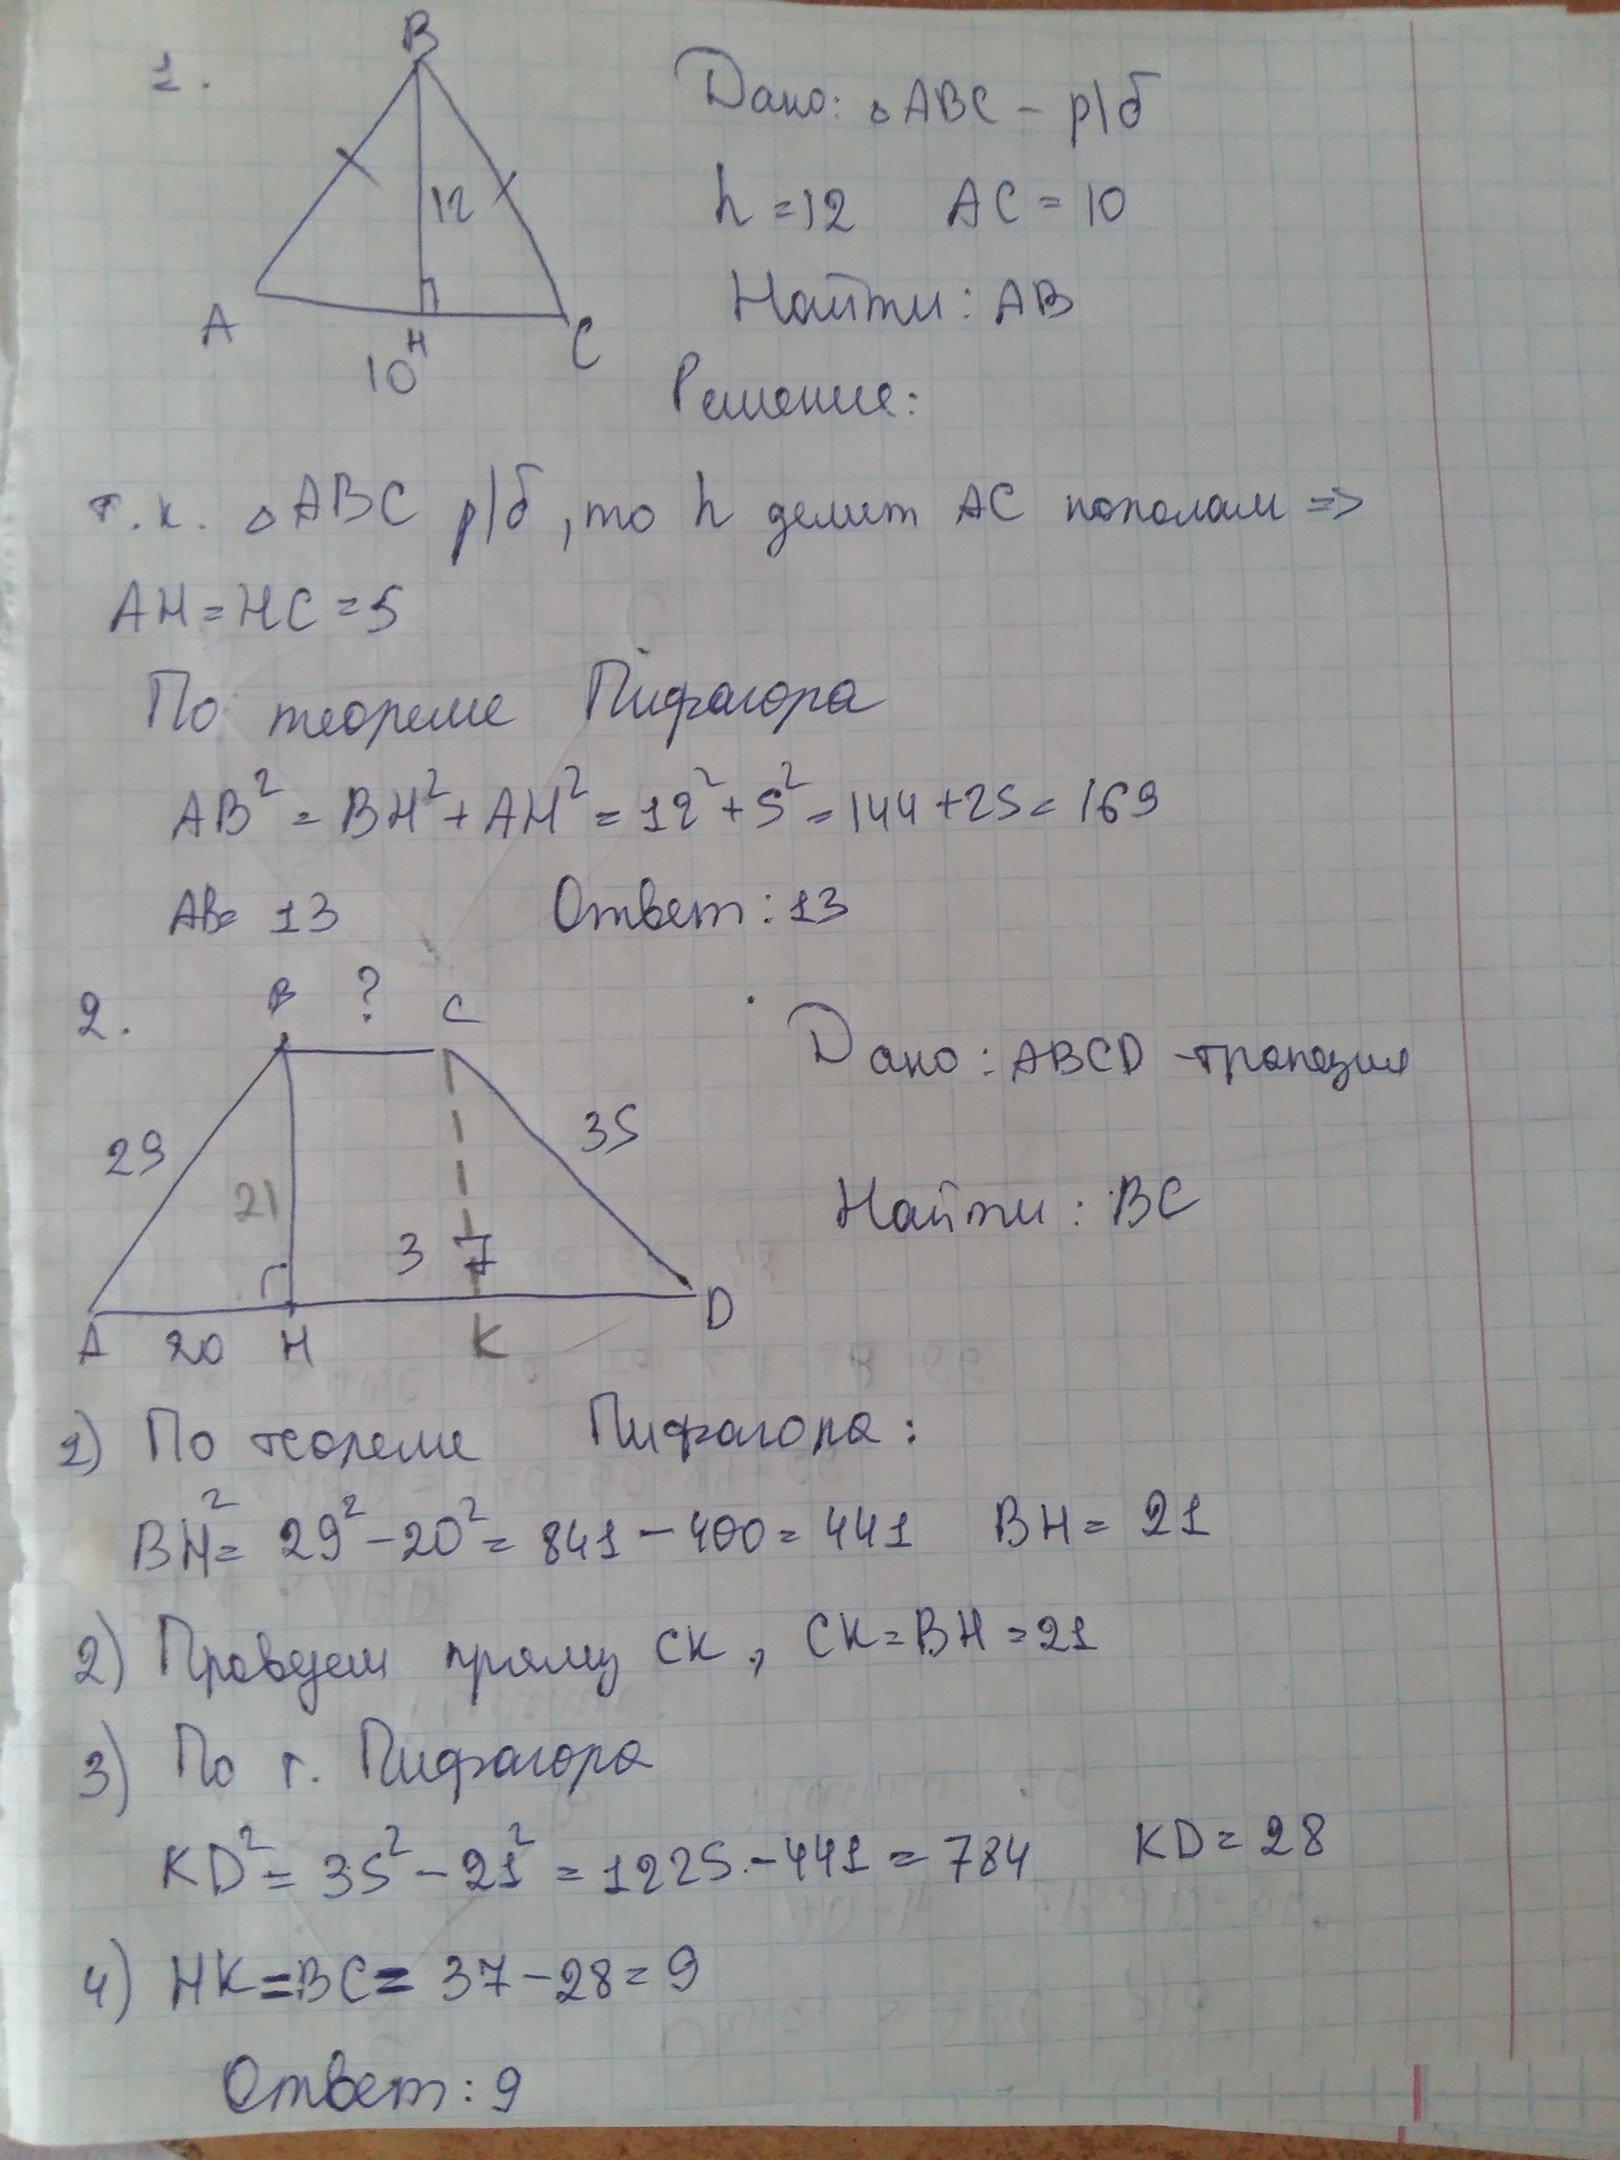 1.
B
Дано: △ABC - р/б
12
h = 12 AC = 10
Найти: AB
A
H
C
10
Решение:
т.к. △ABC р/б, то h делит AC пополам =>
AH = HC = 5
По теореме Пифагора
AB² = BH² + AH² = 12² + 5² = 144 + 25 = 169
AB = 13 Ответ: 13
2.
B ? C
Дано: ABCD - трапеция
29
35
21
Найти: BC
3 7
A 20 H K D
1) По теореме Пифагора:
BH² = 29² - 20² = 841 - 400 = 441 BH = 21
2) Проведем прямую CK, CK = BH = 21
3) По т. Пифагора
KD² = 35² - 21² = 1225 - 441 = 784 KD = 28
4) HK = BC = 37 - 28 = 9
Ответ: 9